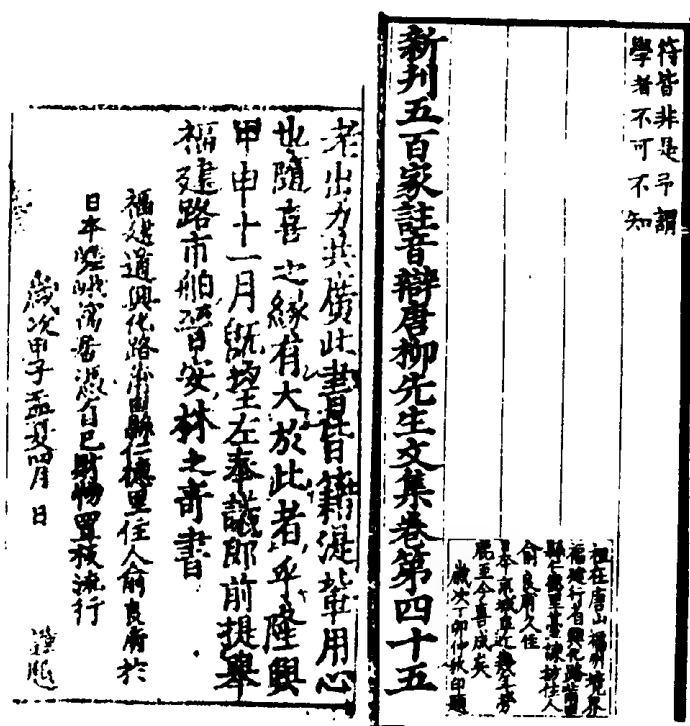 符皆非是予謂
學者不可不知
新刋五百家註音辯唐柳先生文集卷第四十五
祖在唐山福州境界
福建行省興化路莆田
縣仁德里臺諫坊住人
俞良甫久住
日本京城阜近幾年勞
鹿至今喜成矣
歲次丁卯仲秋印題
者出力共廣此書
用心
也隨喜之緣有大於此者乎隆興
甲申十一月既望左奉議郎前提舉
福建路市舶晉安林之奇書
福建道興化路莆田縣仁德里住人俞良甫於
日本嵯峨寓居憑自己財物置板流行
歲次甲子孟夏四月 日 謹題